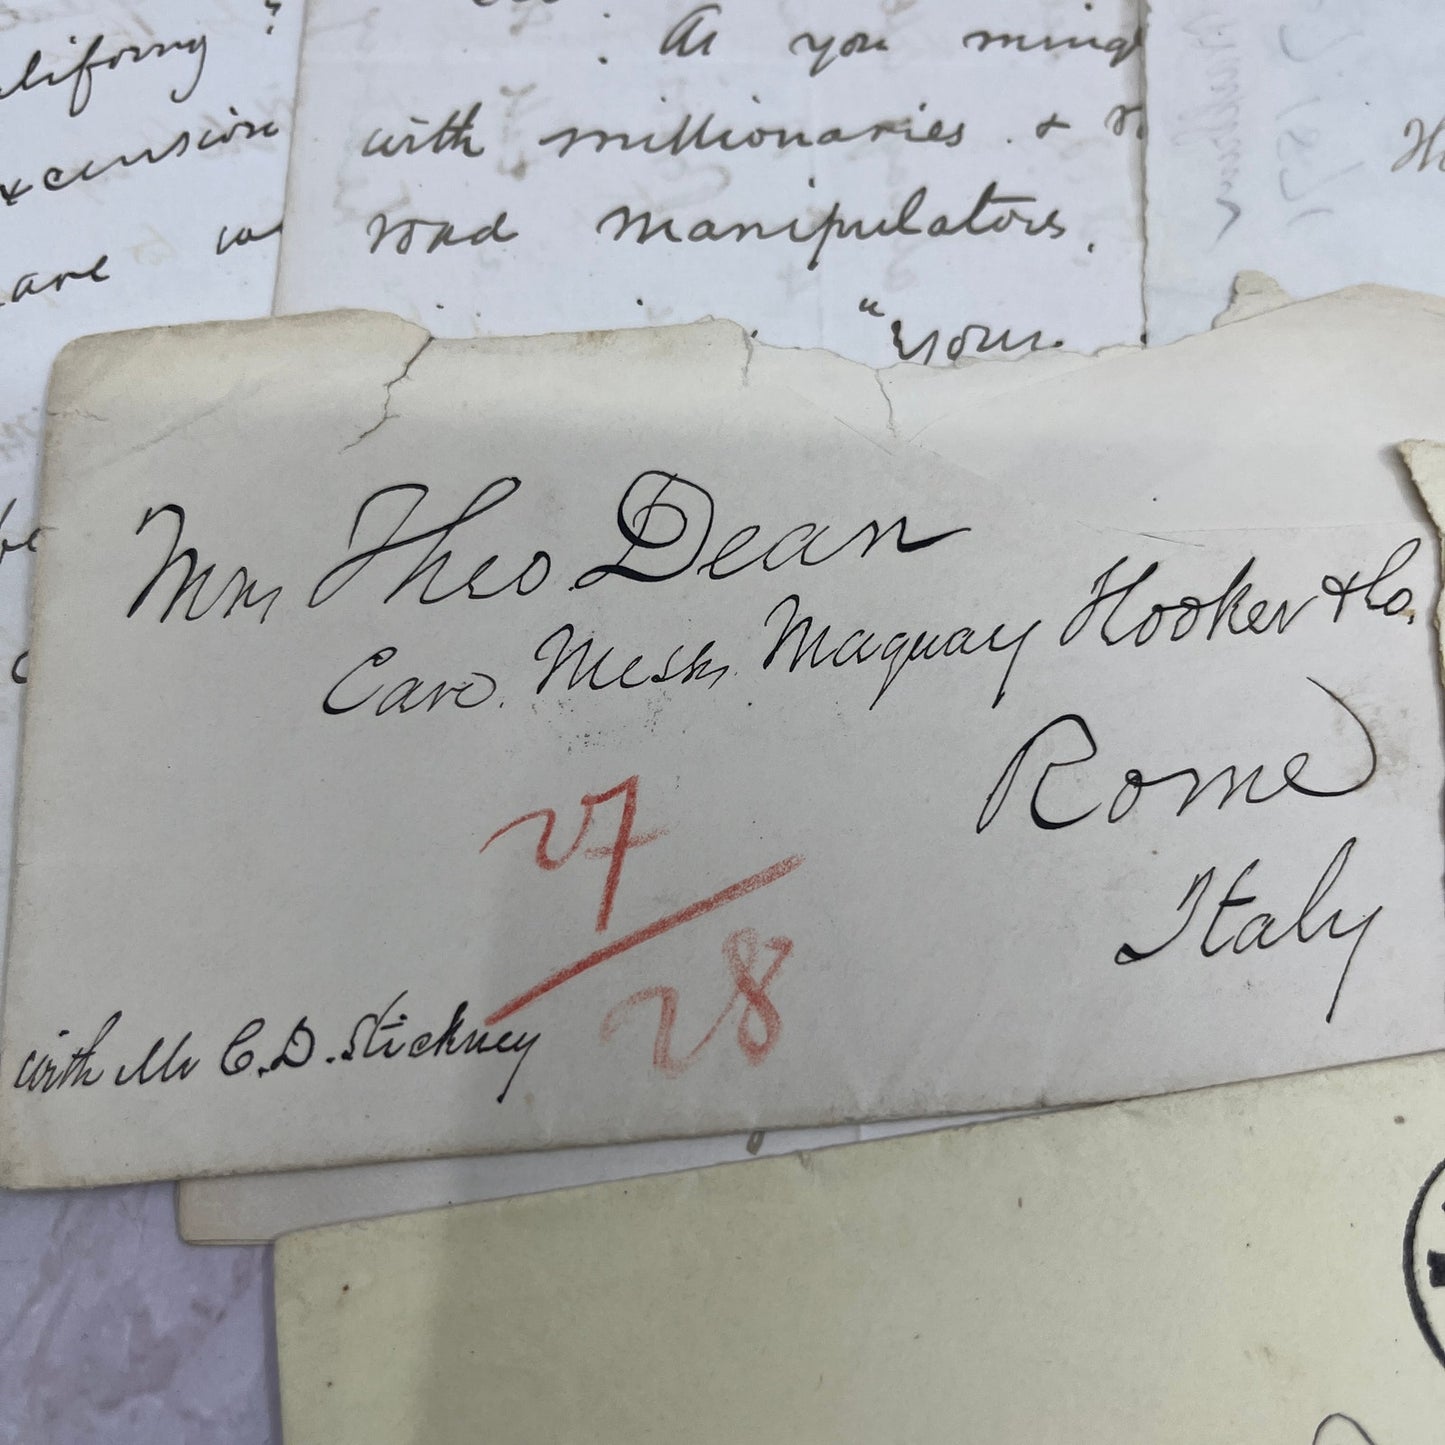 excursion
are
As you
with millionaries . &
road manipulators.
"your
Mrs Theo. Dean
Care. Messrs. Maquay Hooker & Co.
Rome
Italy
27
28
with Mr C. D. Stickney